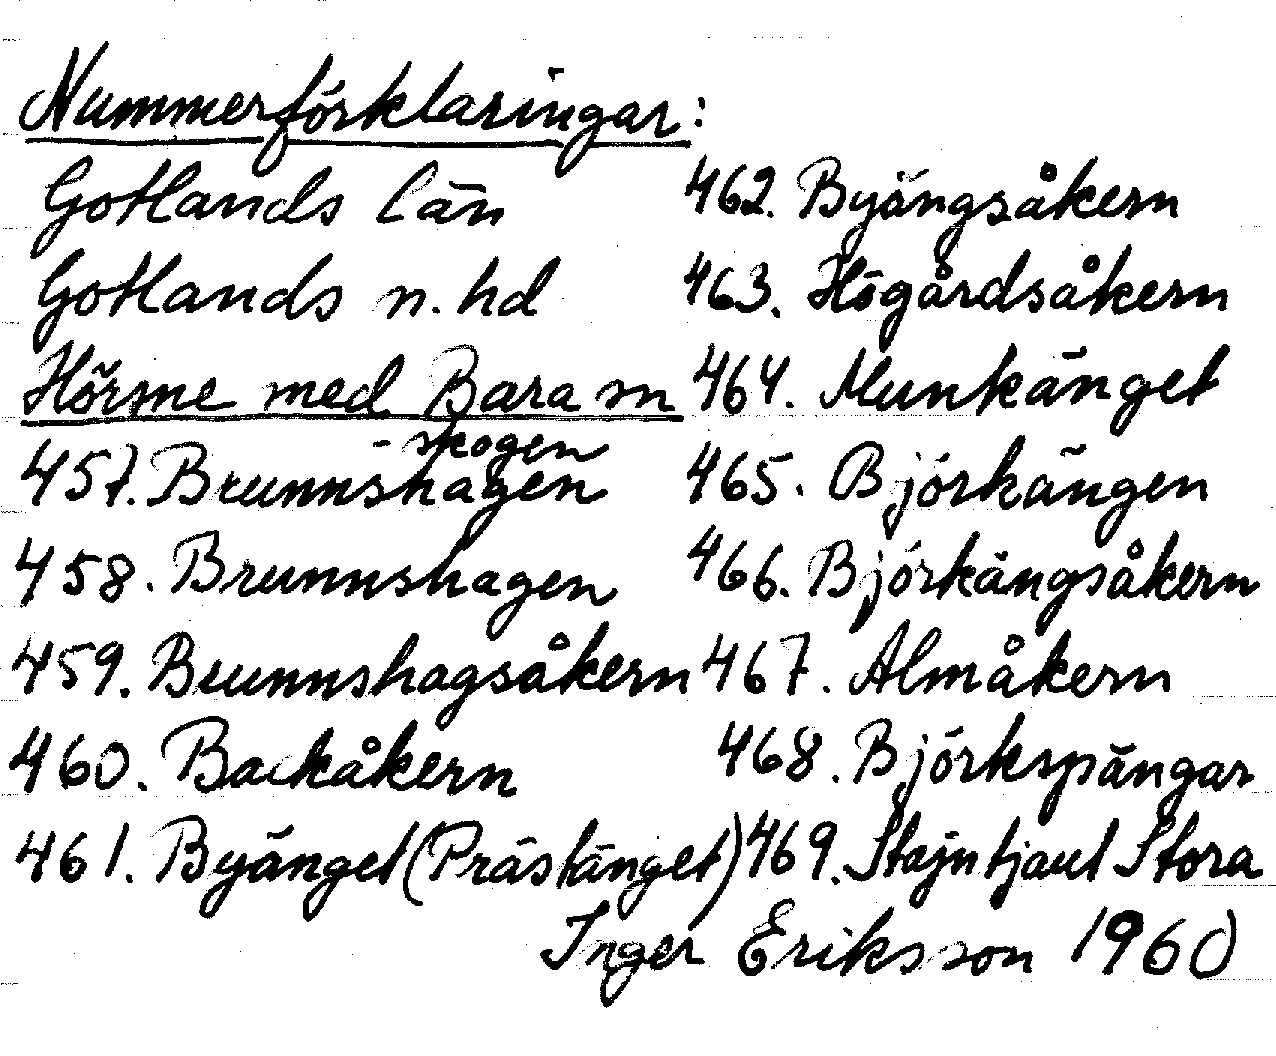 Nummerförklaringar:
Gotlands län
Gotlands n. hd
Hörsne med Bara sn
457. Brunnshagen
-skogen
458. Brunnshagen
459. Brunnshagsåkern
460. Backåkern
461. Byänget (Prästänget)
462. Byängsåkern
463. Högårdsåkern
464. Munkänget
465. Björkängen
466. Björkängsåkern
467. Almåkern
468. Björkspängar
469. Stajntjaut Stora
Inger Eriksson 1960